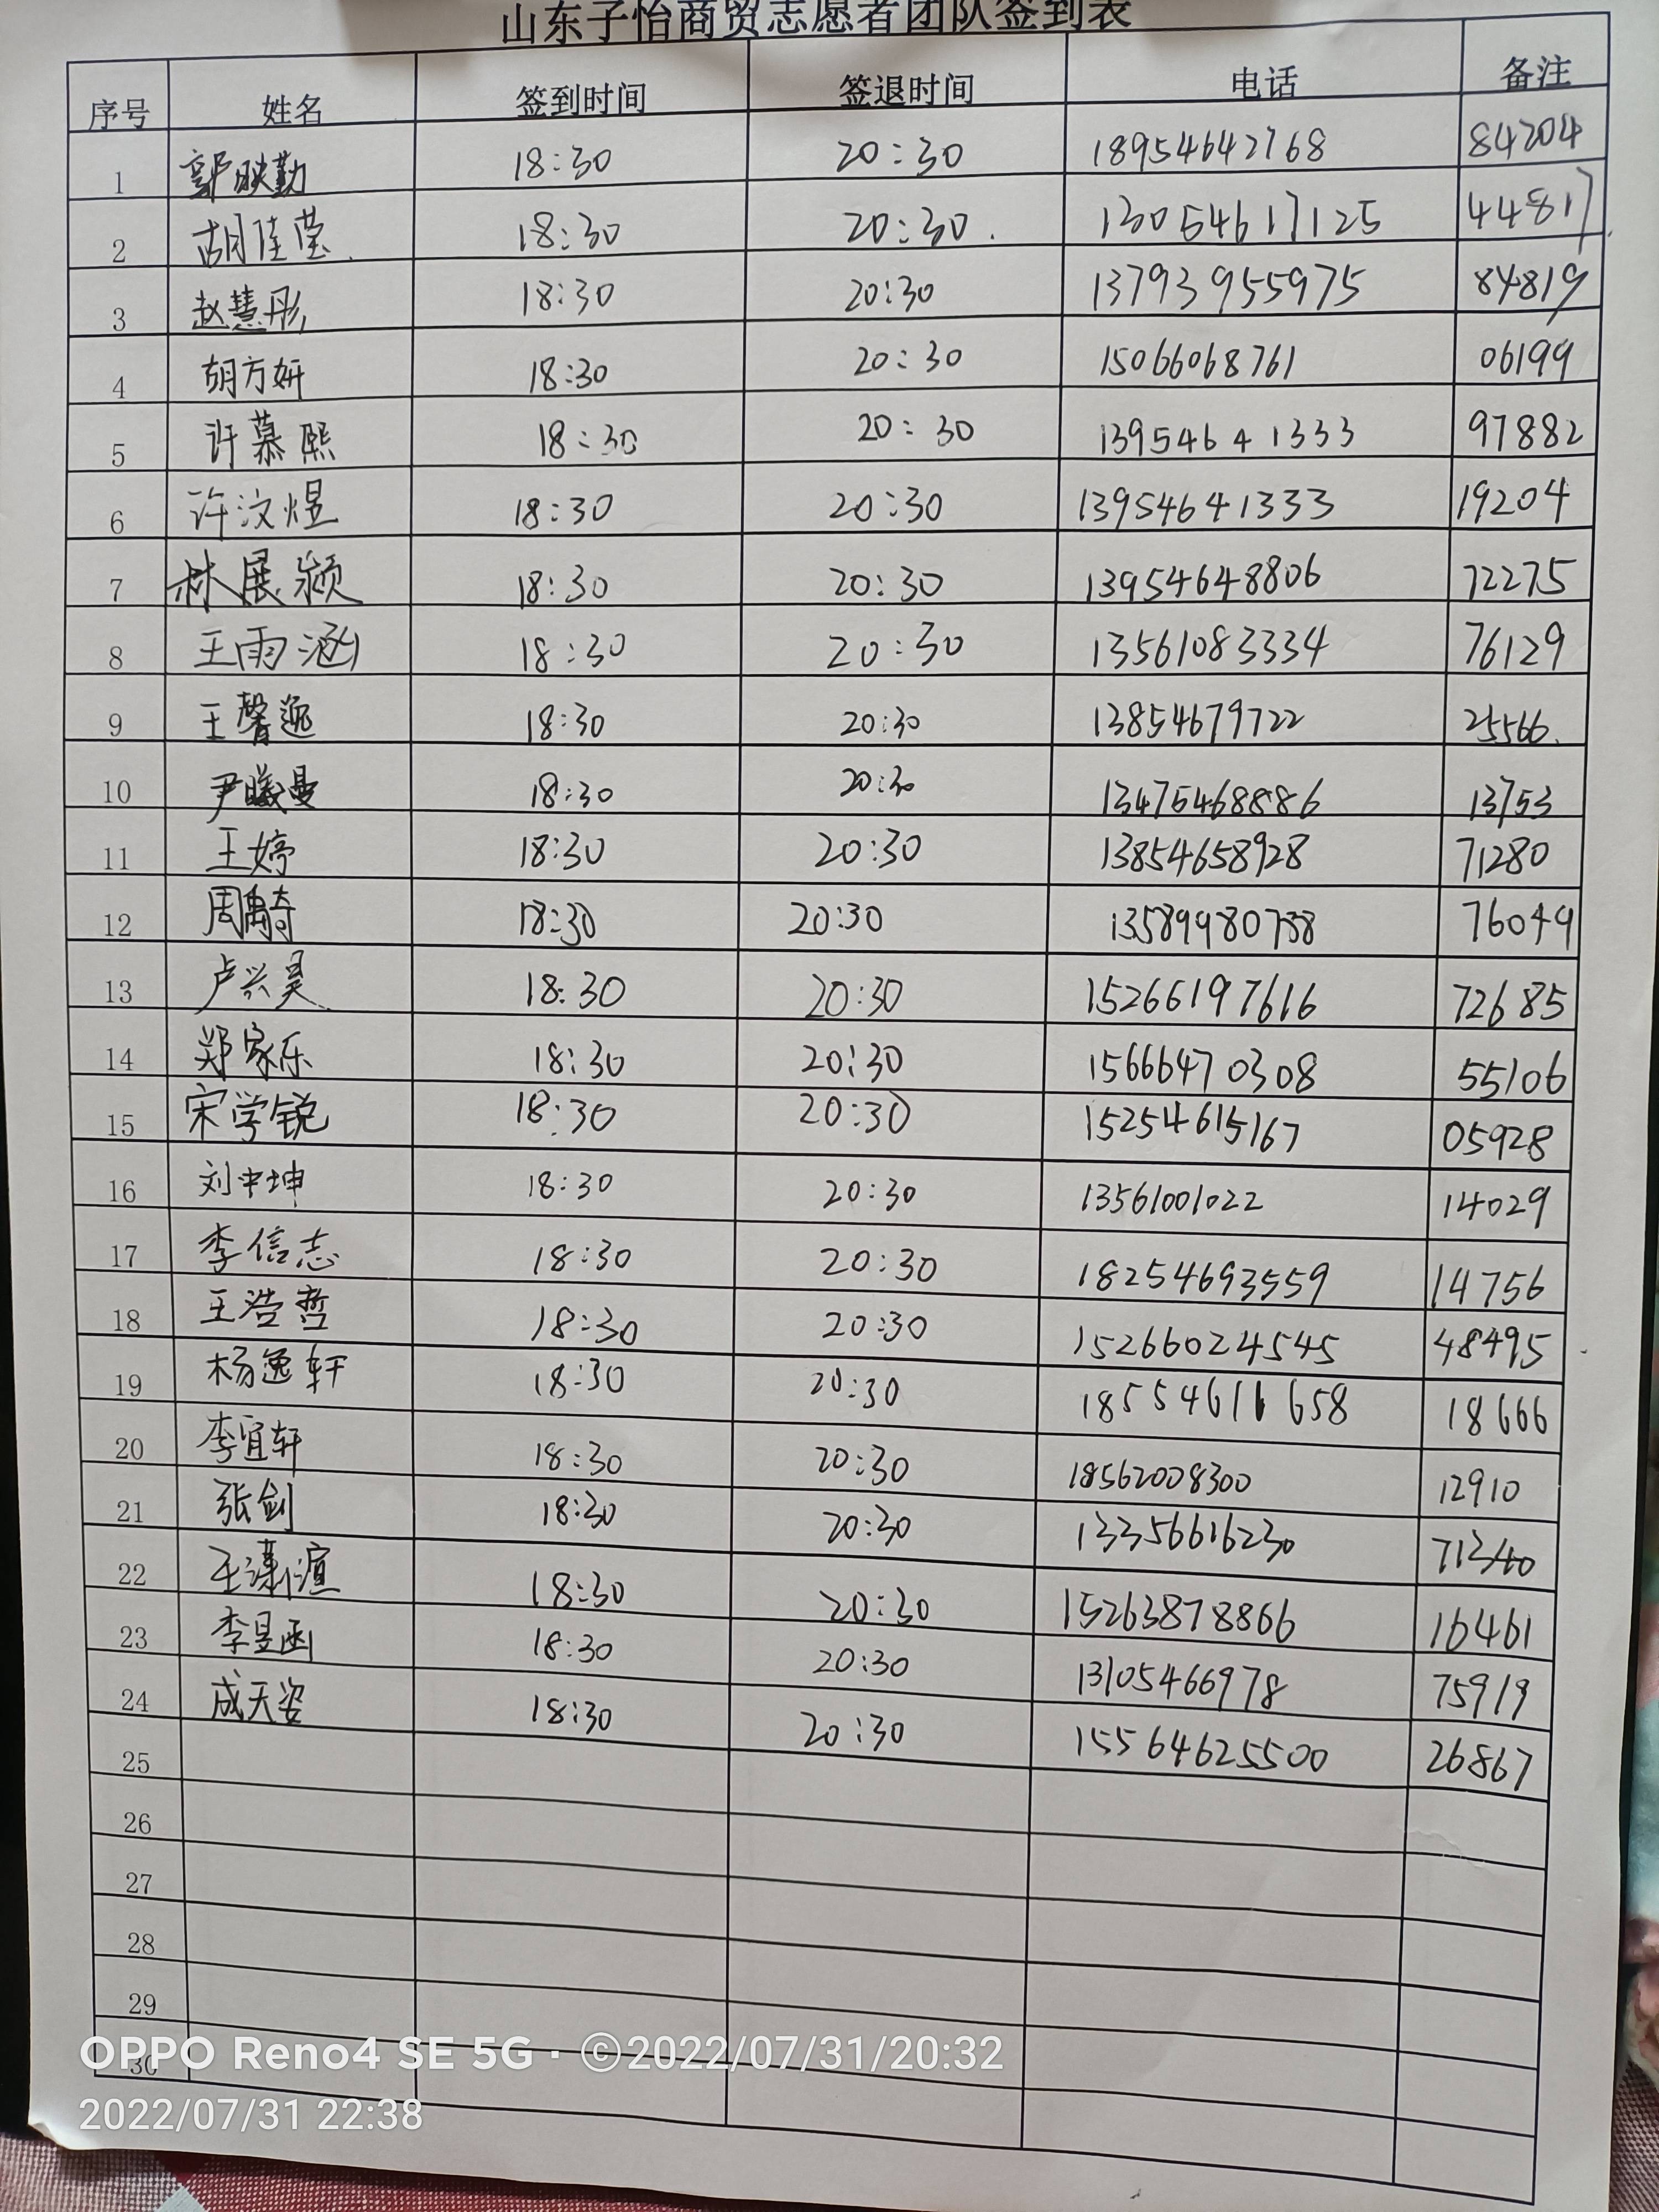 山东子怡商贸志愿者团队签到表
序号 姓名 签到时间 签退时间 电话 备注
1 郭映勤 18:30 20:30 18954642768 84204
2 胡佳莹 18:30 20:30 13054617125 44817
3 赵慧彤 18:30 20:30 13793955975 84819
4 胡方妍 18:30 20:30 15066068761 06199
5 许慕熙 18:30 20:30 13954641333 97882
6 许汶煜 18:30 20:30 13954641333 19204
7 林展颍 18:30 20:30 13954648806 72275
8 王雨涵 18:30 20:30 13561083334 76129
9 王馨逸 18:30 20:30 13854679722 25566
10 尹曦曼 18:30 20:30 13475468886 13753
11 王婷 18:30 20:30 13854658928 71280
12 周禹奇 18:30 20:30 13589980738 76049
13 卢兴昊 18:30 20:30 15266197616 72685
14 郑家乐 18:30 20:30 15666470308 55106
15 宋学锐 18:30 20:30 15254615167 05928
16 刘中坤 18:30 20:30 13561001022 14029
17 李信志 18:30 20:30 18254693559 14756
18 王浩哲 18:30 20:30 15266024545 48495
19 杨逸轩 18:30 20:30 18554611658 18666
20 李宜轩 18:30 20:30 18562008300 12910
21 张剑 18:30 20:30 13356616230 71340
22 王潇渲 18:30 20:30 15263878866 16461
23 李昱函 18:30 20:30 13105466978 75919
24 成天姿 18:30 20:30 15564625500 26867
25
26
27
28
29
30
OPPO Reno4 SE 5G · ©2022/07/31/20:32
2022/07/31 22:38